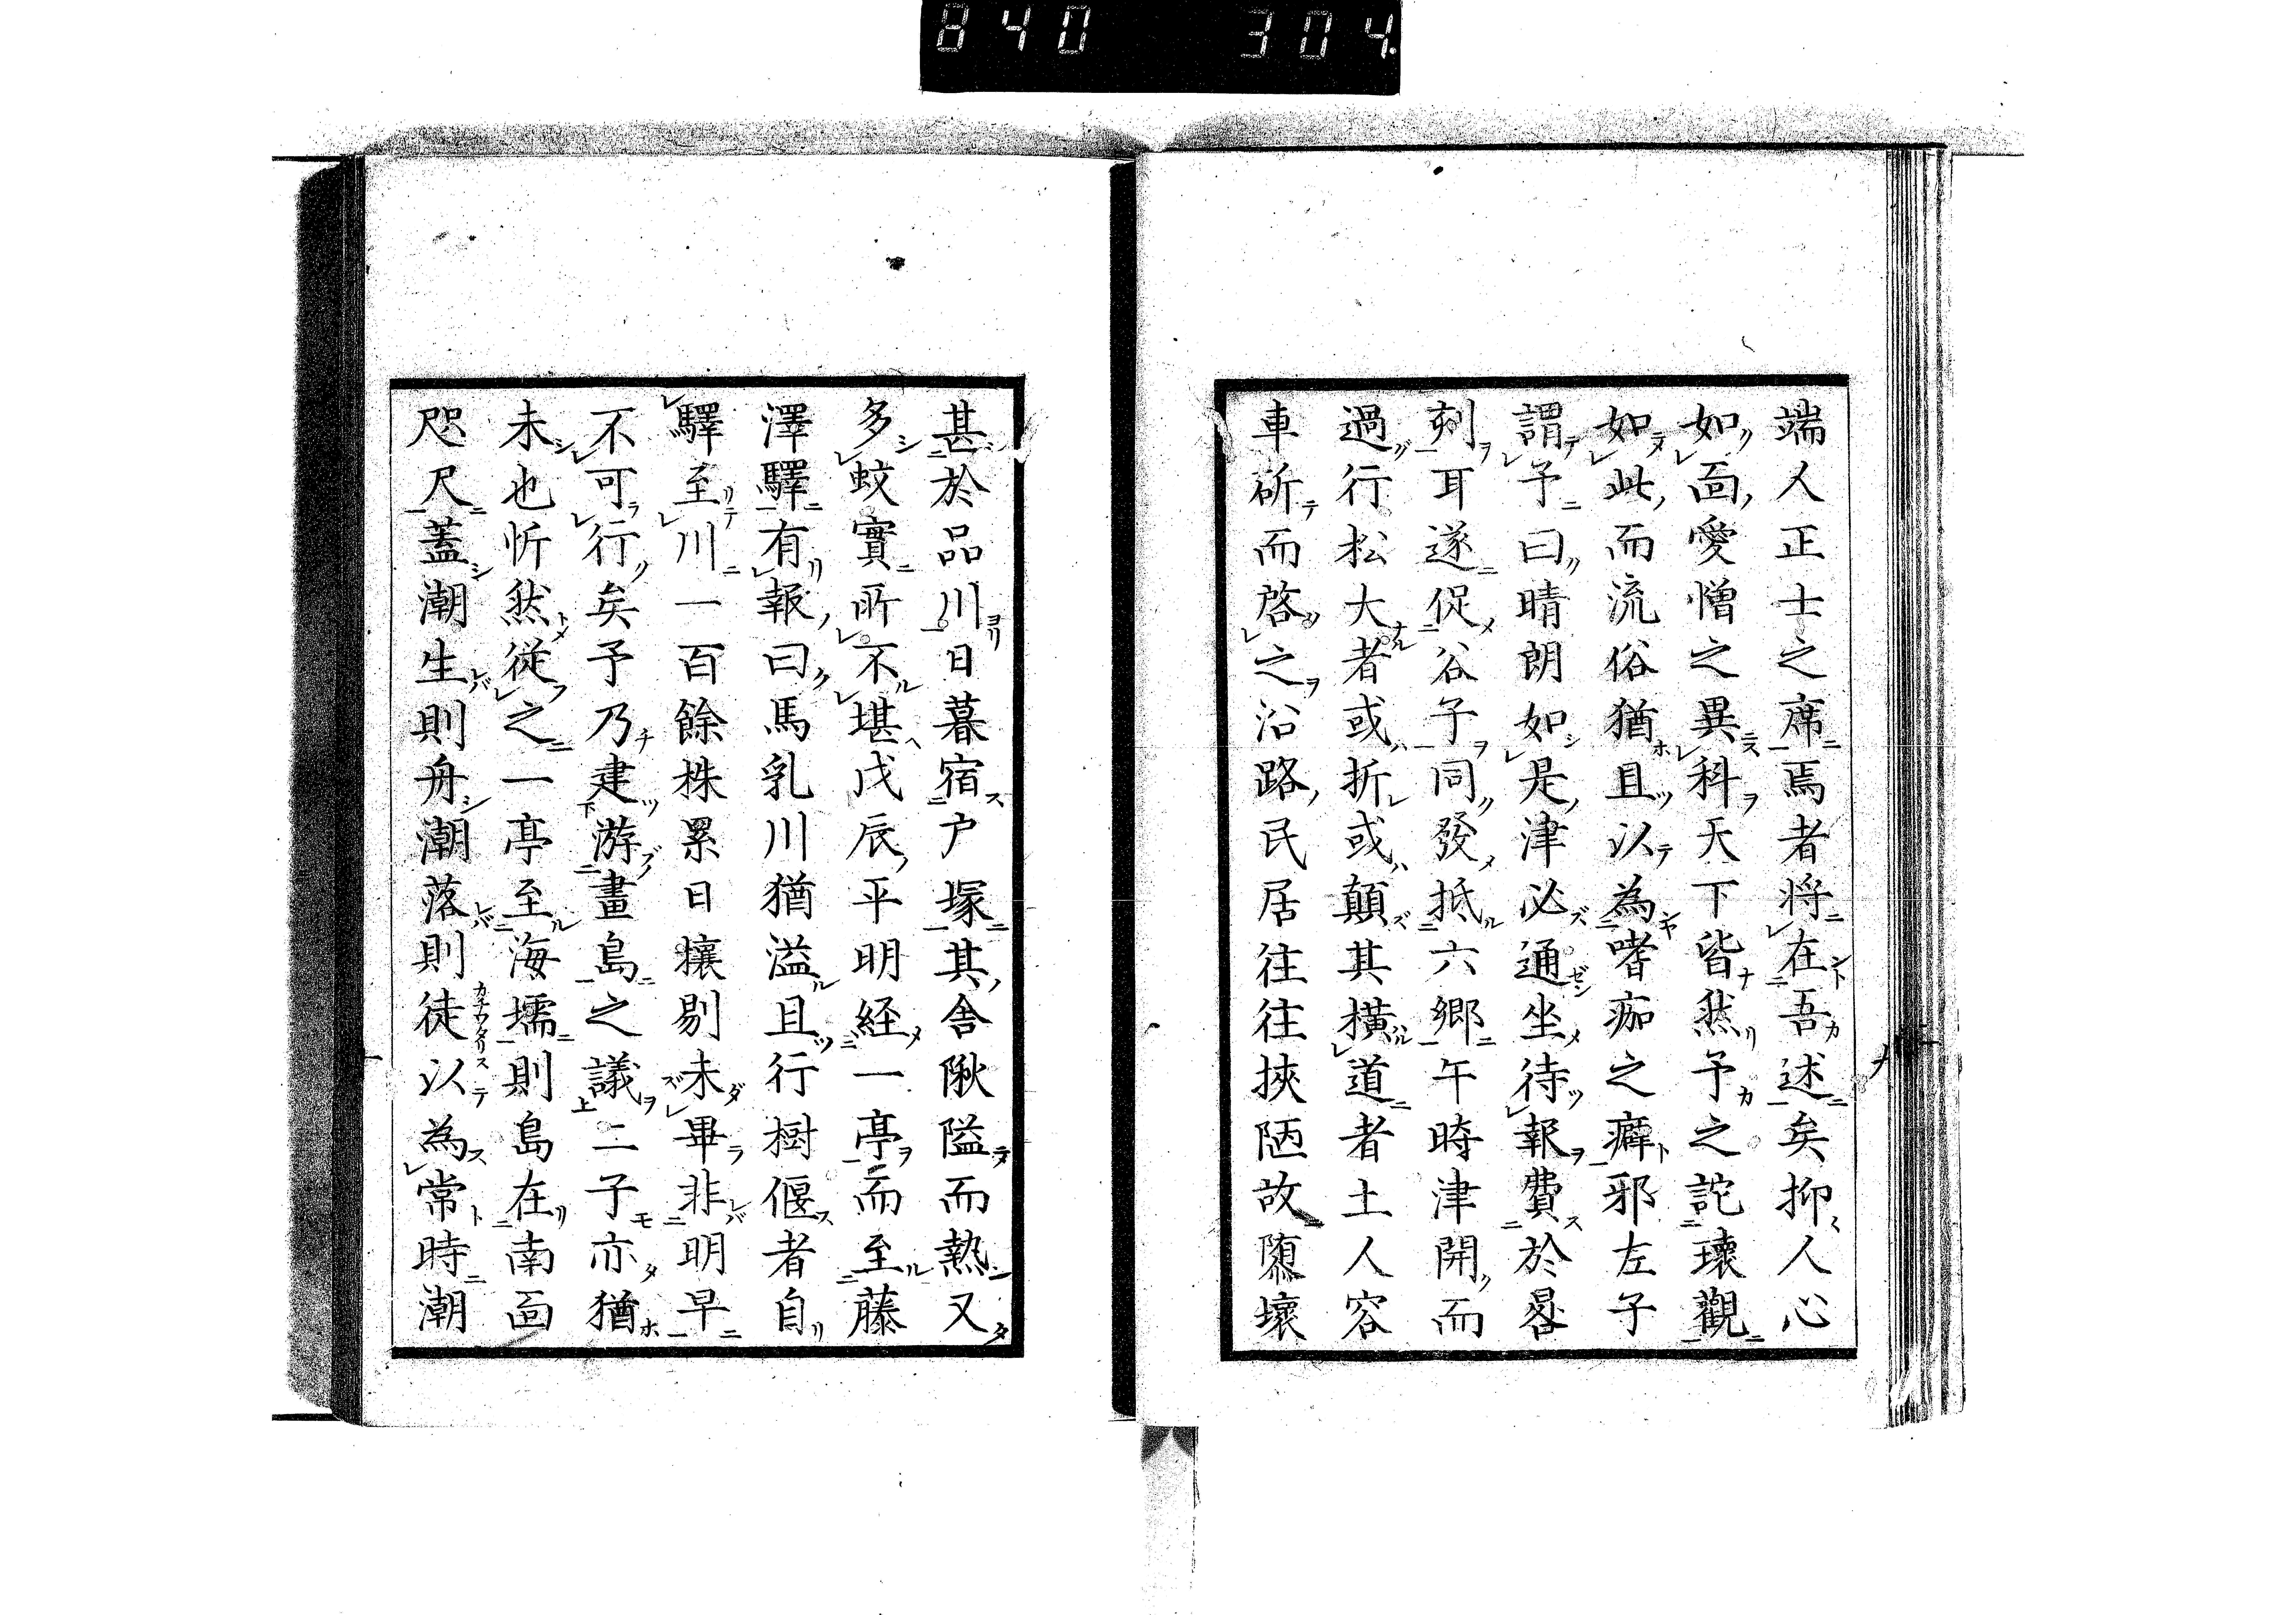 840 304.
端人正士之席焉者将在吾述矣抑人心
如面愛憎之異科天下皆然予之詫瓌觀
如此而流俗猶且以為嗜痂之癖邪左子
謂予曰晴朗如是津必通坐待報費於晷
刻耳遂促谷子同發抵六郷午時津開而
過行松大者或折或顛其橫道者土人容
車斫而啓之沿路民居往往挾陋故隳壊
甚於品川日暮宿户塚其舎湫隘而熱又
多蚊實所不堪戊辰平明経一亭而至藤
澤驛有報曰馬乳川猶溢且行樹偃者自
驛至川一百餘株累日攘剔未畢非明早
不可行矣予乃建游畫島之議二子亦猶
未也忻然従之一亭至海壖則島在南面
咫尺蓋潮生則舟潮落則徒以為常時潮